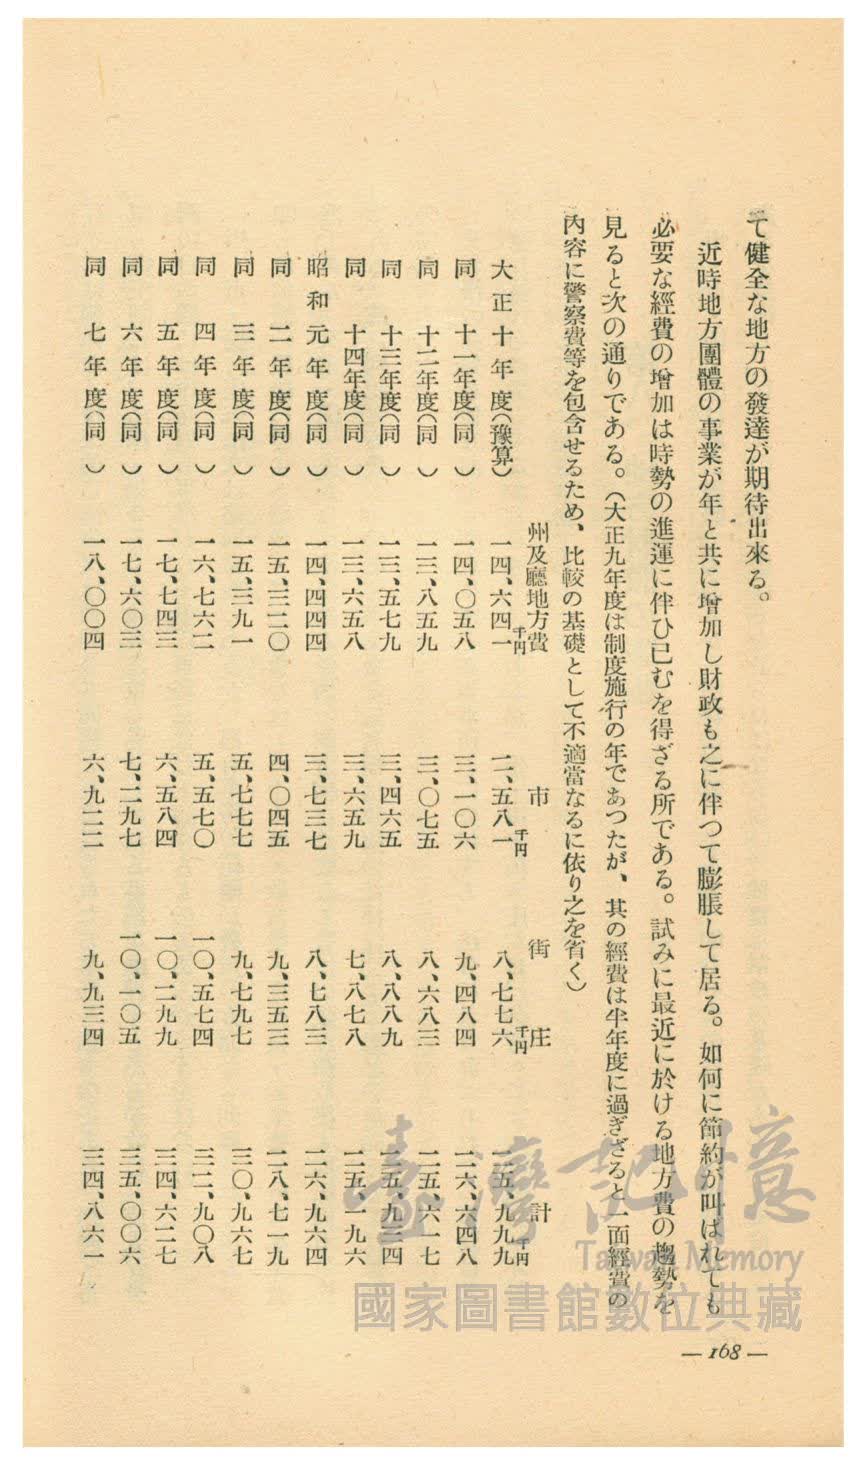 て健全な地方の發達が期待出來る。
近時地方團體の事業が年と共に增加し財政も之に伴つて膨脹して居る。如何に節約が叫ばれても
必要な經費の增加は時勢の進運に伴ひ已むを得ざる所である。試みに最近に於ける地方費の趨勢を
見ると次の通りである。(大正九年度は制度施行の年であつたが、其の經費は半年度に過ぎざると一面經費の
內容に警察費等を包含せるため、比較の基礎として不適當なるに依り之を省く)
州及廳地方費 市 街庄 計
大正十年度(豫算) 一四、六四一千円 二、五八一千円 八、七七六千円 二五、九九九千円
同 十一年度(同) 一四、〇五八 三、一〇六 九、四八四 二六、六四八
同 十二年度(同) 一三、八五九 三、〇七五 八、六八三 二五、六一七
同 十三年度(同) 一三、五七九 三、四六五 八、八八九 二五、九三四
同 十四年度(同) 一三、六五八 三、六五九 七、八七八 二五、一九六
昭和元年度(同) 一四、四四四 三、七三七 八、七八三 二六、九六四
同 二年度(同) 一五、三二〇 四、〇四五 九、三五三 二八、七一九
同 三年度(同) 一五、三九一 五、七七七 九、七九七 三〇、九六七
同 四年度(同) 一六、七六二 五、五七〇 一〇、五七四 三二、九〇八
同 五年度(同) 一七、七四三 六、五八四 一〇、二九九 三四、六二七
同 六年度(同) 一七、六〇三 七、二九七 一〇、一〇五 三五、〇〇六
同 七年度(同) 一八、〇〇四 六、九二二 九、九三四 三四、八六一
臺灣記憶
Taiwan Memory
國家圖書館數位典藏
— 168 —